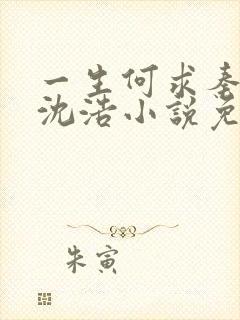 一生何求秦
沈浩小説免
朱寅